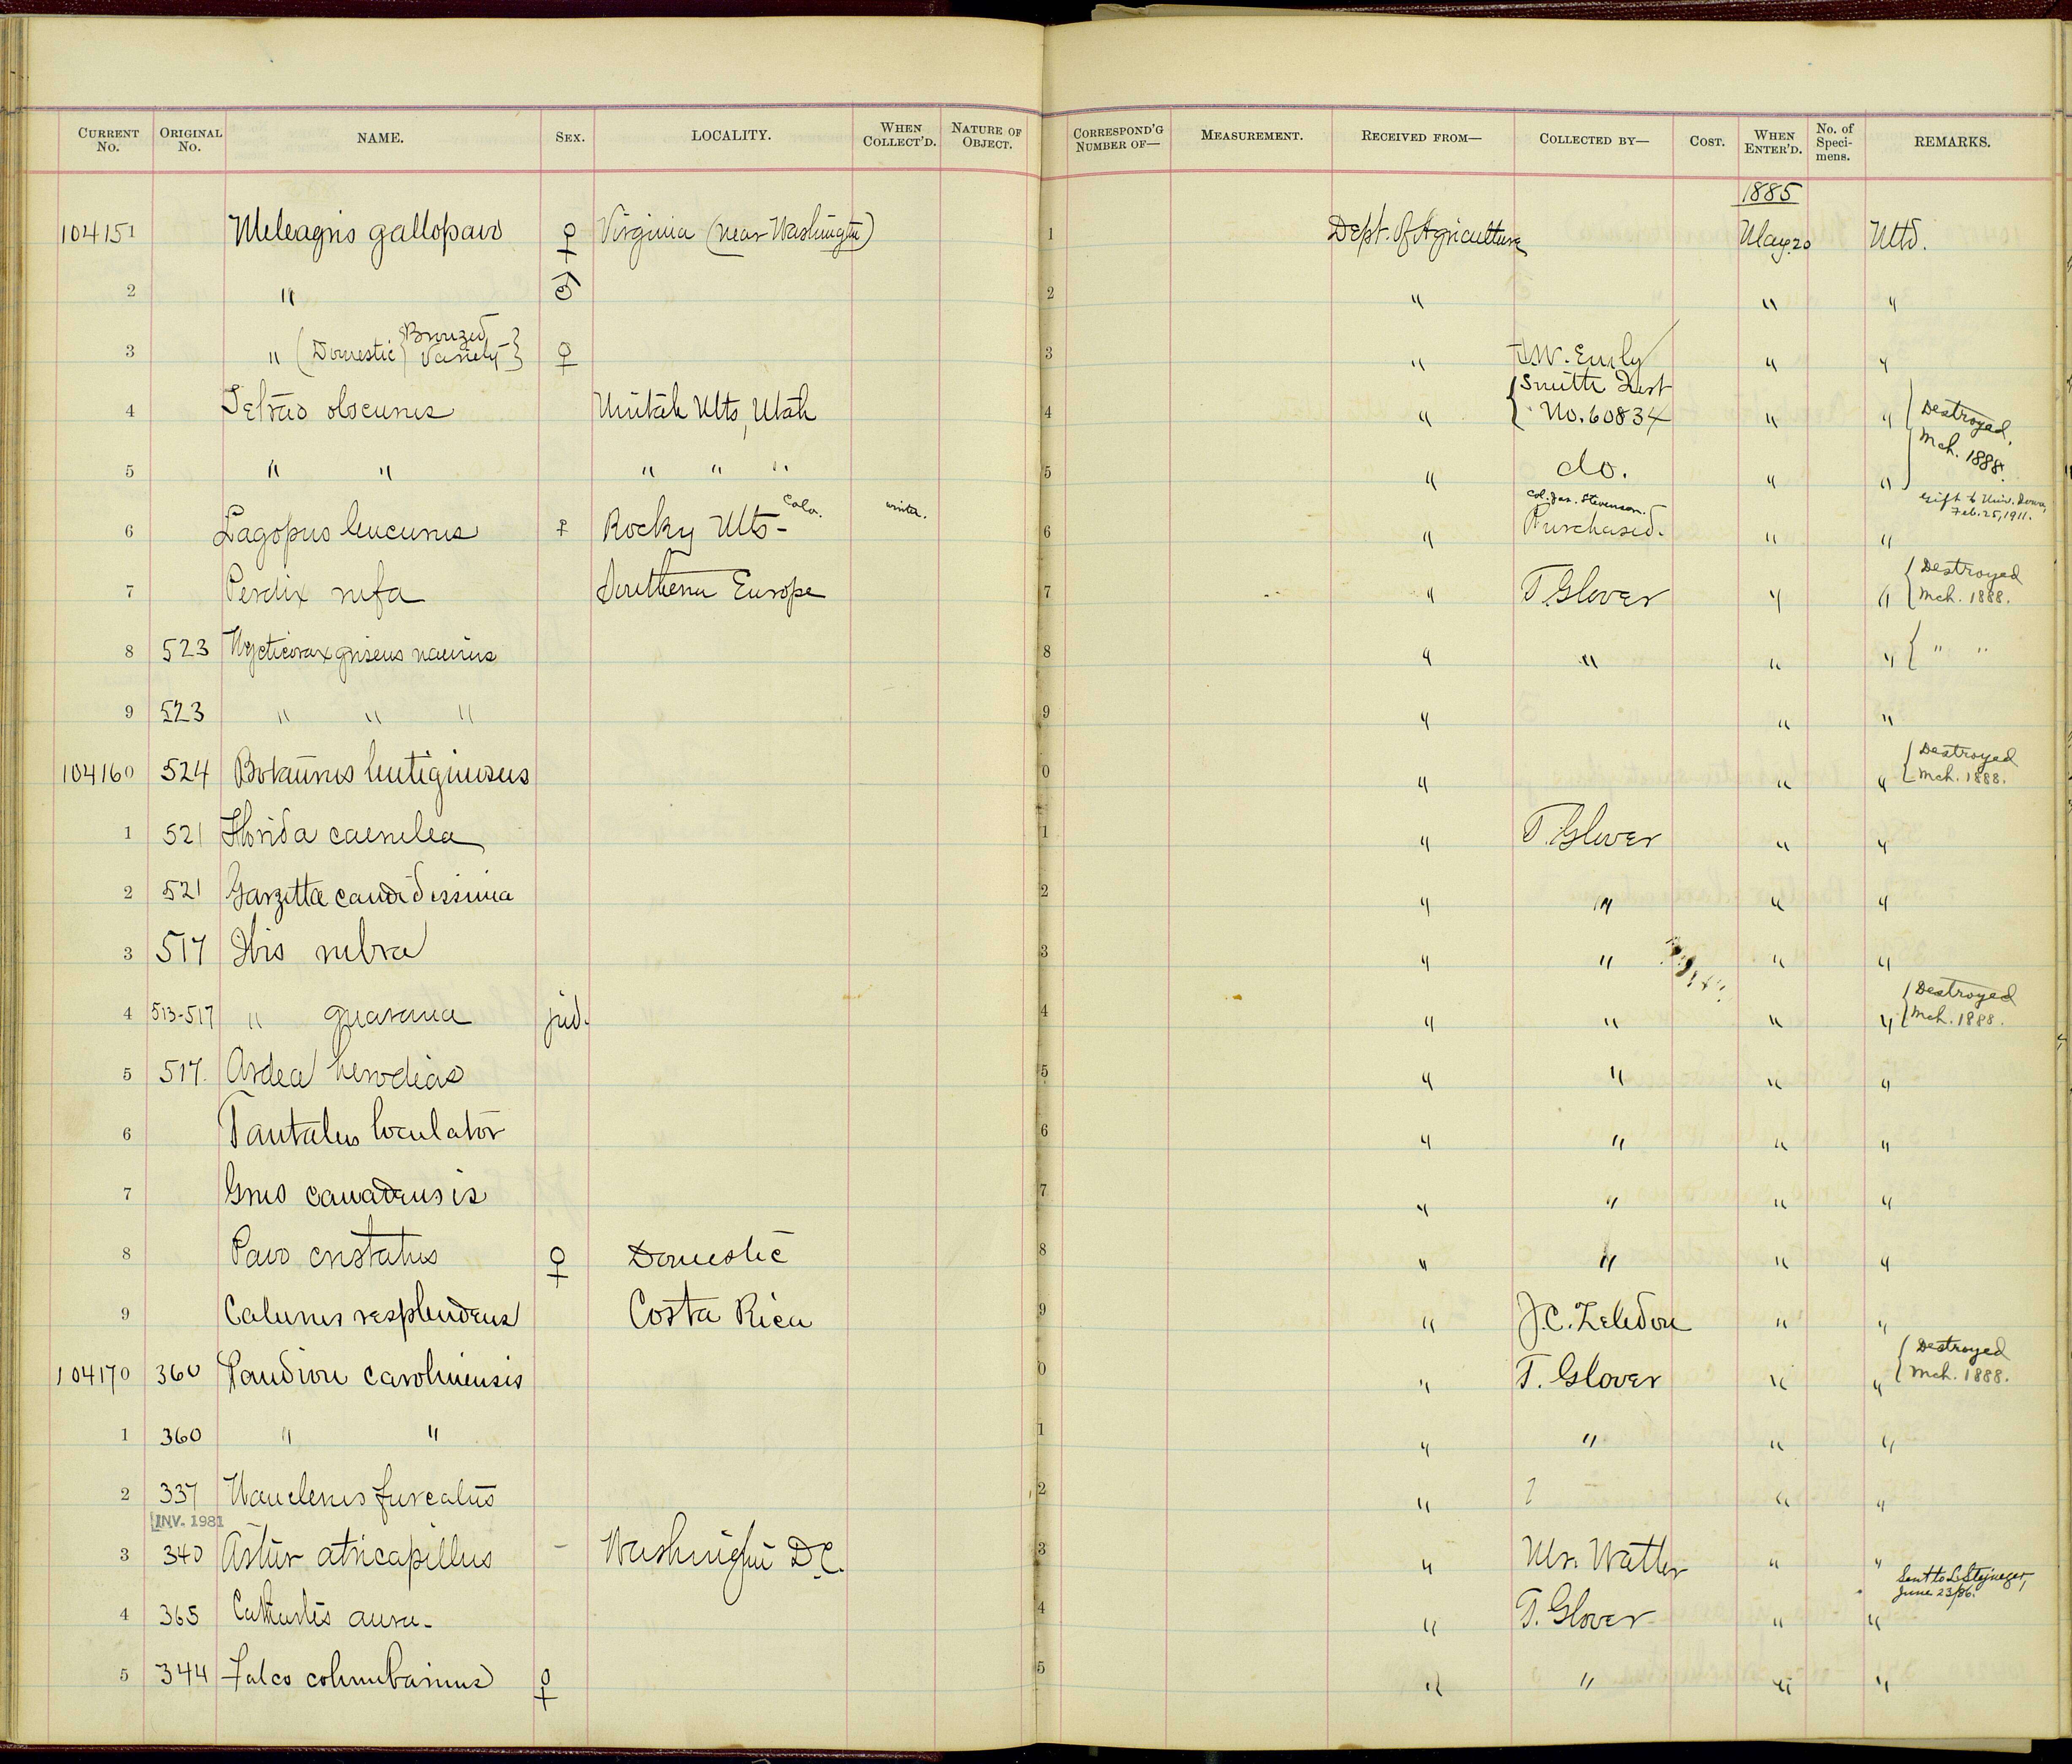 CURRENT No. ORIGINAL No. NAME. SEX. LOCALITY. WHEN COLLECT'D. NATURE OF OBJECT. CORRESPOND'G NUMBER OF— MEASUREMENT. RECEIVED FROM— COLLECTED BY— COST. WHEN ENTER'D. No. of Specimens. REMARKS.
1885
104151 Meleagris gallopavo ♀ Virginia (near Washington) 1 Dept. of Agriculture May 20 Mtd.
2 " ♂ 2 " " "
3 " (Domestic) Bronzed Variety ♀ 3 " J.W. Emly " "
4 Tetrao obscurus Uintah Mts, Utah 4 " Smith Inst No. 60834 " " Destroyed, Mch. 1888.
5 " " " " " 5 " do. " "
6 Lagopus leucurus ♀ Rocky Mts- Colo. winter. 6 " Col. Jas. Stevenson. Purchased. " " Gift to Univ. Feb. 25, 1911.
7 Perdix rufa Southern Europe 7 " T. Glover " " Destroyed Mch. 1888.
8 523 Nycticorax griseus naevius 8 " " " " " "
9 523 " " " 9 " " "
104160 524 Botaurus lentiginosus 0 " " " Destroyed Mch. 1888.
1 521 Florida caerulea 1 " T. Glover " "
2 521 Garzetta candidissima 2 " " " "
3 517 Ibis rubra 3 " " " "
4 513-517 " guarauna jud. 4 " " " " Destroyed Mch. 1888.
5 517. Ardea herodias 5 " " " "
6 Tantalus loculator 6 " " " "
7 Grus canadensis 7 " " " "
8 Pavo cristatus ♀ Domestic 8 " " " "
9 Calurus resplendens Costa Rica 9 " J.C. Zeledon " "
104170 360 Pandion carolinensis 0 " T. Glover " " Destroyed Mch. 1888.
1 360 " " 1 " " " "
2 337 Nauclerus furcatus 2 " ? " "
INV. 1981
3 340 Astur atricapillus - Washington D.C. 3 " Mr. Watler " " Sent to L. Stejneger, June 23/86.
4 365 Cathartes aura- 4 " T. Glover " "
5 344 Falco columbarius ♀ 5 " " " "